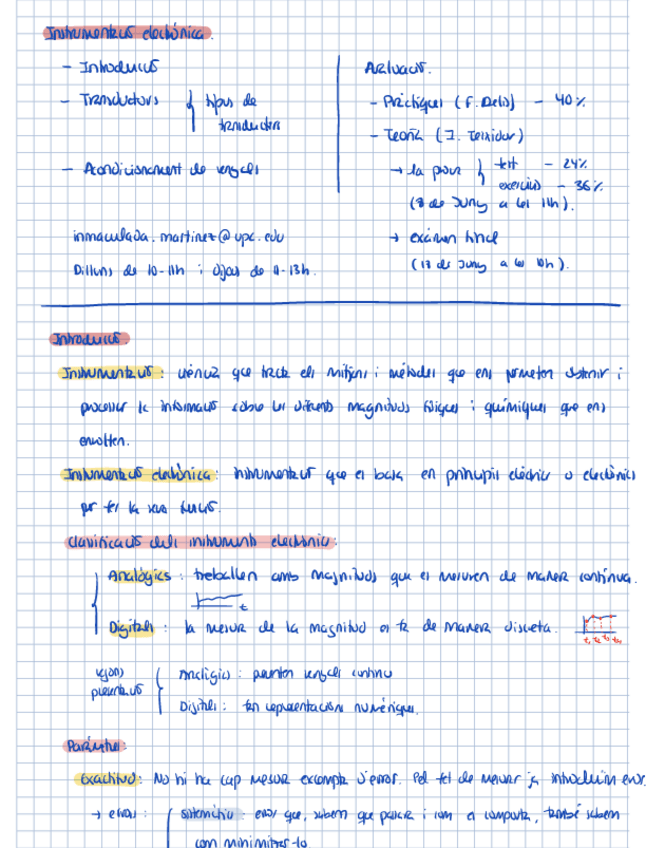 Instrumentació electrònica.
- Introducció
- Transductors { tipus de
transductors
- Acondicionament de senyals
inmaculada.martinez@upc.edu
Dilluns de 10-11h i dijous de 11-13h.
Avaluació.
- Pràctiques (F. Delos) - 40%
- Teoria (J. Teixidor)
→ 1a prova { test - 24%
exercicis - 36%
(8 de Juny a les 11h).
→ examen final
(17 de Juny a les 10h).
Introducció
Instrumentació: ciència que tracta els mitjans i mètodes que ens permeten obtenir i
processar la informació sobre les diferents magnituds físiques i químiques que ens
envolten.
Instrumentació electrònica: instrumentació que es basa en principis elèctrics o electrònics
per fer la seva funció.
Classificació dels instruments electrònics:
Analògics: treballen amb magnituds que es mesuren de manera contínua.
t
Digitals: la mesura de la magnitud es fa de manera discreta.
t₁ t₂ t₃ t₄
segons
presentació { Analògics: presenten senyals continu
Digitals: fan representacions numèriques.
Paràmetres:
Exactitud: No hi ha cap mesura exempta d'error. Pel fet de mesurar ja introduïm error.
→ errors: { sistemàtic error que, sabem que passarà i com es comporta, també sabem
com minimitzar-lo.